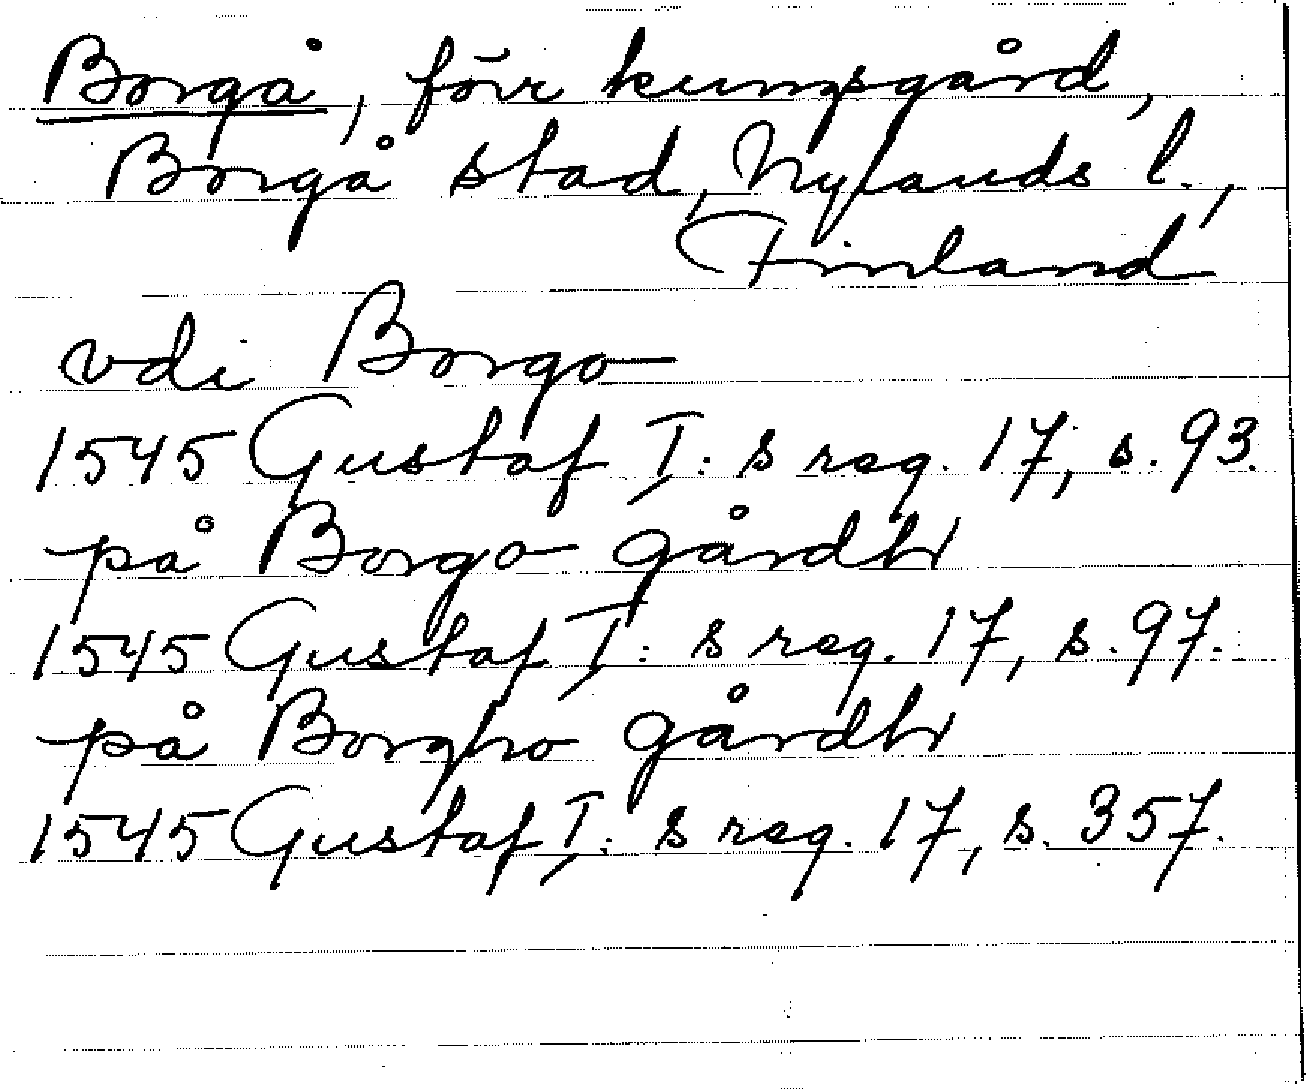 Borgå, förr kungsgård,
Borgå stad, Nylands l.,
Finland
vdi Borgo
1545 Gustaf I:s reg. 17, s. 93.
på Borgo gårdh
1545 Gustaf I:s reg. 17, s. 97.
på Borgho gårdh
1545 Gustaf I:s reg. 17, s. 357.